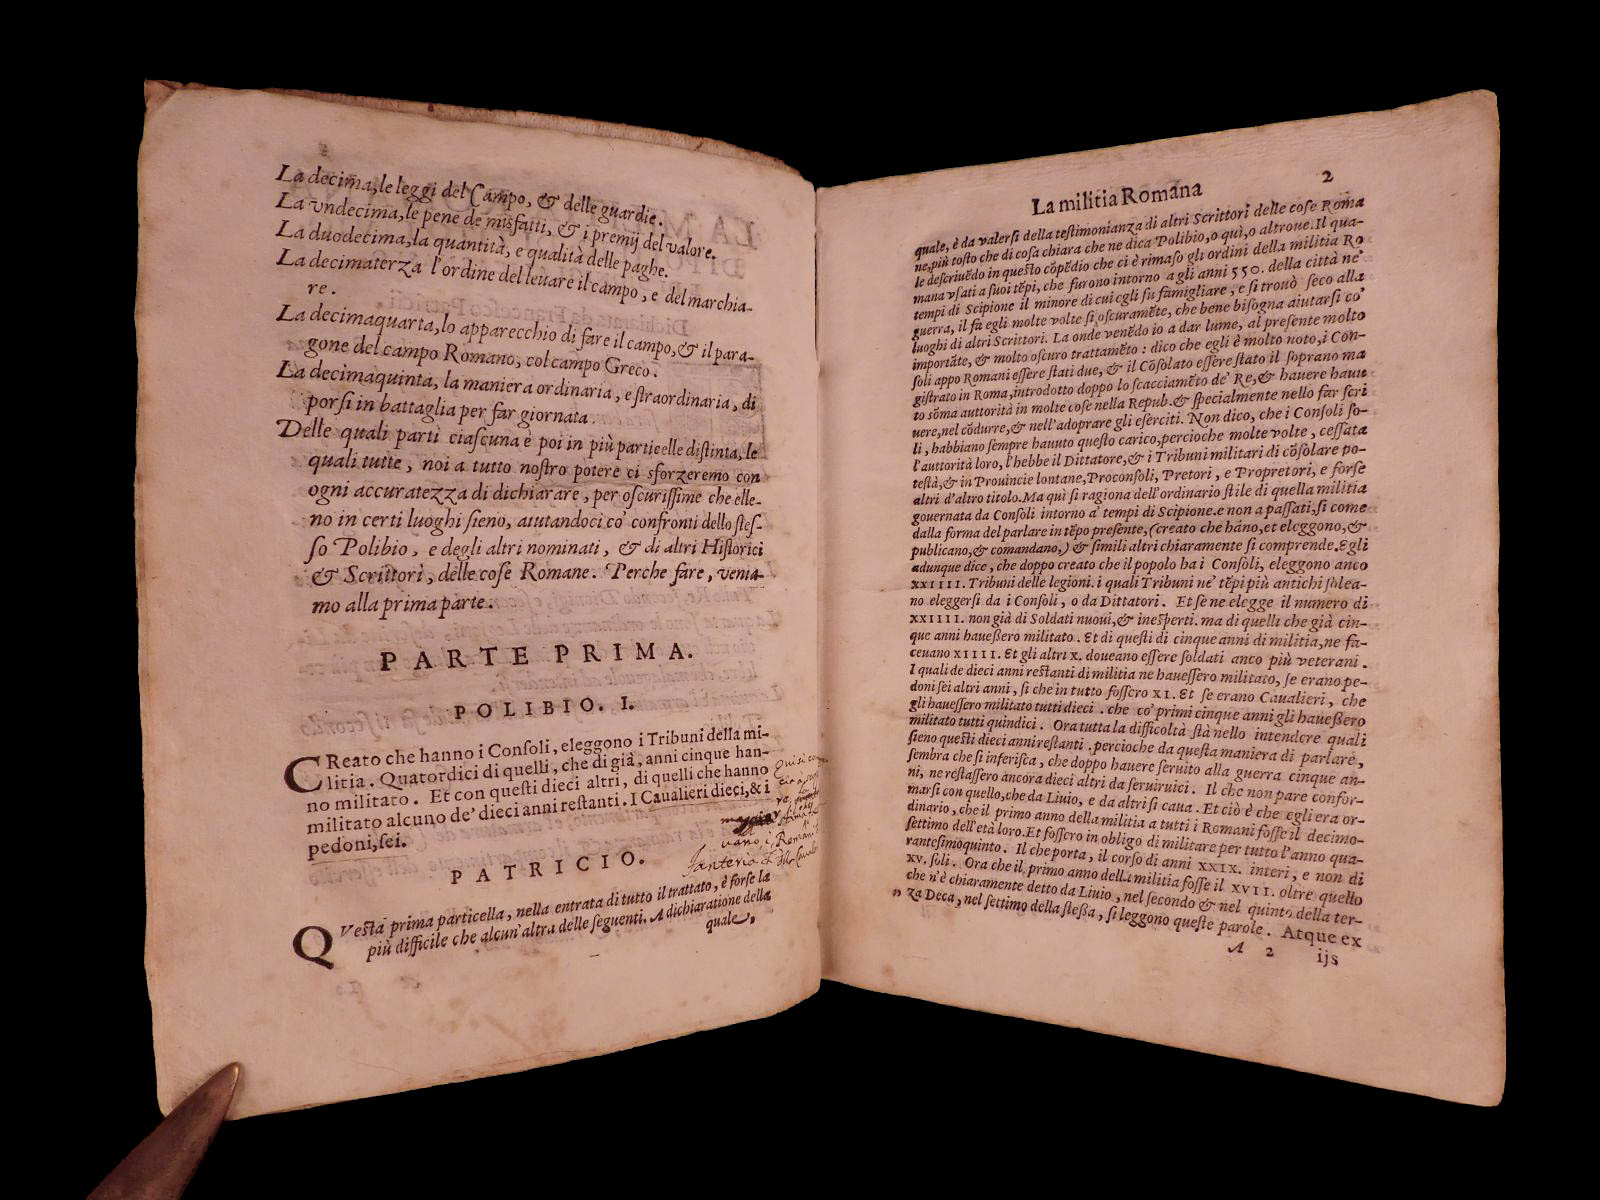 La decima, le leggi del Campo, & delle guardie.
La vndecima, le pene de misfatti, & i premij del valore.
La duodecima, la quantità, e qualità delle paghe.
La decimaterza l'ordine del leuare il campo, e del marchia-
re.
La decimaquarta, lo apparecchio di fare il campo, & il para-
gone del campo Romano, col campo Greco.
La decimaquinta, la maniera ordinaria, e straordinaria, di
porsi in battaglia per far giornata.
Delle quali parti ciascuna è poi in più particelle distinta, le
quali tutte, noi a tutto nostro potere ci sforzeremo con
ogni accuratezza di dichiarare, per oscurissime che elle-
no in certi luoghi sieno, aiutandoci co' confronti dello stes-
so Polibio, e degli altri nominati, & di altri Historici
& Scrittori, delle cose Romane. Perche fare, venia-
mo alla prima parte.
PARTE PRIMA.
POLIBIO. I.
CReato che hanno i Consoli, eleggono i Tribuni della mi-
litia. Quatordici di quelli, che di già, anni cinque han-
no militato. Et con questi dieci altri, di quelli che hanno
militato alcuno de' dieci anni restanti. I Caualieri dieci, & i
pedoni, sei.
PATRICIO.
QVesta prima particella, nella entrata di tutto il trattato, è forse la
più difficile che alcun'altra delle seguenti. A dichiaratione della
quale,
La militia Romana
2
quale, è da valersi della testimonianza di altri Scrittori delle cose Roma
ne, più tosto che di cosa chiara che ne dica Polibio, o quì, o altroue. Il qua-
le descriuẽdo in questo cõpẽdio che ci è rimaso gli ordini della militia Ro
mana vsati a suoi tẽpi, che furono intorno a gli anni 550. della città ne'
tempi di Scipione il minore di cui egli fu famigliare, e si trouò seco alla
guerra, il fà egli molte volte sì oscuramẽte, che bene bisogna aiutarsi co'
luoghi di altri Scrittori. La onde venẽdo io a dar lume, al presente molto
importãte, & molto oscuro trattamẽto: dico che egli è molto noto, i Con-
soli appo Romani essere stati due, & il Cõsolato essere stato il soprano ma
gistrato in Roma, introdotto doppo lo scacciamẽto de' Re, & hauere hauu
to sõma autorità in molte cose nella Repub. & spetialmente nello far scri
uere, nel cõdurre, & nell'adoprare gli eserciti. Non dico, che i Consoli so-
li, habbiano sempre hauuto questo carico, percioche molte volte, cessata
l'auttorità loro, l'hebbe il Dittatore, & i Tribuni militari di cõsolare po-
testà, & in Prouincie lontane, Proconsoli, Pretori, e Propretori, e forse
altri d'altro titolo. Ma quì si ragiona dell'ordinario stile di quella militia
gouernata da Consoli intorno a' tempi di Scipione. e non a passati, sì come
dalla forma del parlare in tẽpo presente, (creato che hãno, et eleggono, &
publicano, & comandano,) & simili altri chiaramente si comprende. Egli
adunque dice, che doppo creato che il popolo ha i Consoli, eleggono anco
XXIIII. Tribuni delle legioni. i quali Tribuni ne' tẽpi più antichi solea-
no eleggersi da i Consoli, o da Dittatori. Et se ne elegge il numero di
XXIIII. non già di Soldati nuoui, & inesperti. ma di quelli che già cin-
que anni hauessero militato. Et di questi di cinque anni di militia, ne fa-
ceuano XIIII. Et gli altri X. doueano essere soldati anco più veterani.
I quali de dieci anni restanti di militia ne hauessero militato, se erano pe-
doni sei altri anni, sì che in tutto fossero XI. Et se erano Caualieri, che
gli hauessero militato tutti dieci. che co' primi cinque anni gli hauessero
militato tutti quindici. Ora tutta la difficoltà stà nello intendere quali
sieno questi dieci anni restanti. percioche da questa maniera di parlare,
sembra che si inferisca, che doppo hauere seruito alla guerra cinque an-
ni, ne restassero ancora dieci altri da seruirui. Il che non pare confor-
marsi con quello, che da Liuio, e da altri si caua. Et ciò è che egli era or-
dinario, che il primo anno della militia a tutti i Romani fosse il decimo-
settimo dell'età loro. Et fossero in obligo di militare per tutto l'anno qua-
rantesimoquinto. Il che porta, il corso di anni XXIX. interi, e non di
XV. soli. Ora che il, primo anno della militia fosse il XVII. oltre quello
che n'è chiaramente detto da Liuio, nel secondo & nel quinto della ter-
za Deca, nel settimo della stessa, si leggono queste parole. Atque ex
A 2
ijs